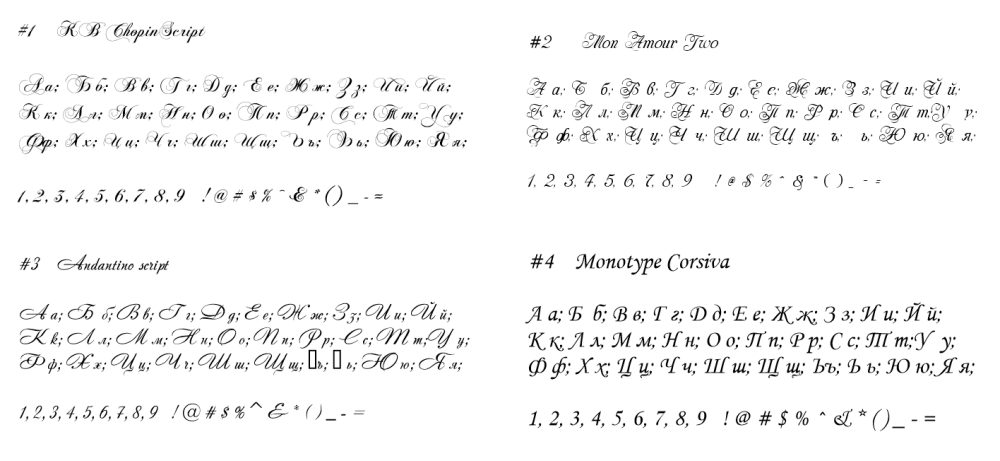 #1 KB ChopinScript
А а; Б б; В в; Г г; Д д; Е е; Ж ж; З з; И и; Й й;
К к; Л л; М м; Н н; О о; П п; Р р; С с; Т т; У у;
Ф ф; Х х; Ц ц; Ч ч; Ш ш; Щ щ; Ъ ъ; Ь ь; Ю ю; Я я;
1, 2, 3, 4, 5, 6, 7, 8, 9 ! @ # $ % ^ & * ( ) _ - =
#2 Mon Amour Two
А а; Б б; В в; Г г; Д д; Е е; Ж ж; З з; И и; Й й;
К к; Л л; М м; Н н; О о; П п; Р р; С с; Т т; У у;
Ф ф; Х х; Ц ц; Ч ч; Ш ш; Щ щ; ъ; ь; Ю ю; Я я;
1, 2, 3, 4, 5, 6, 7, 8, 9 ! @ $ % ^ & * ( ) _ - =
#3 Andantino script
А а; Б б; В в; Г г; Д д; Е е; Ж ж; З з; И и; Й й;
К к; Л л; М м; Н н; О о; П п; Р р; С с; Т т; У у;
Ф ф; Х х; Ц ц; Ч ч; Ш ш; Щ щ; ъ; ь; Ю ю; Я я;
1, 2, 3, 4, 5, 6, 7, 8, 9 ! @ # $ % ^ & * ( ) _ - =
#4 Monotype Corsiva
А а; Б б; В в; Г г; Д д; Е е; Ж ж; З з; И и; Й й;
К к; Л л; М м; Н н; О о; П п; Р р; С с; Т т; У у;
Ф ф; Х х; Ц ц; Ч ч; Ш ш; Щ щ; Ъ ъ; Ь ь; Ю ю; Я я;
1, 2, 3, 4, 5, 6, 7, 8, 9 ! @ # $ % ^ & * ( ) _ - =